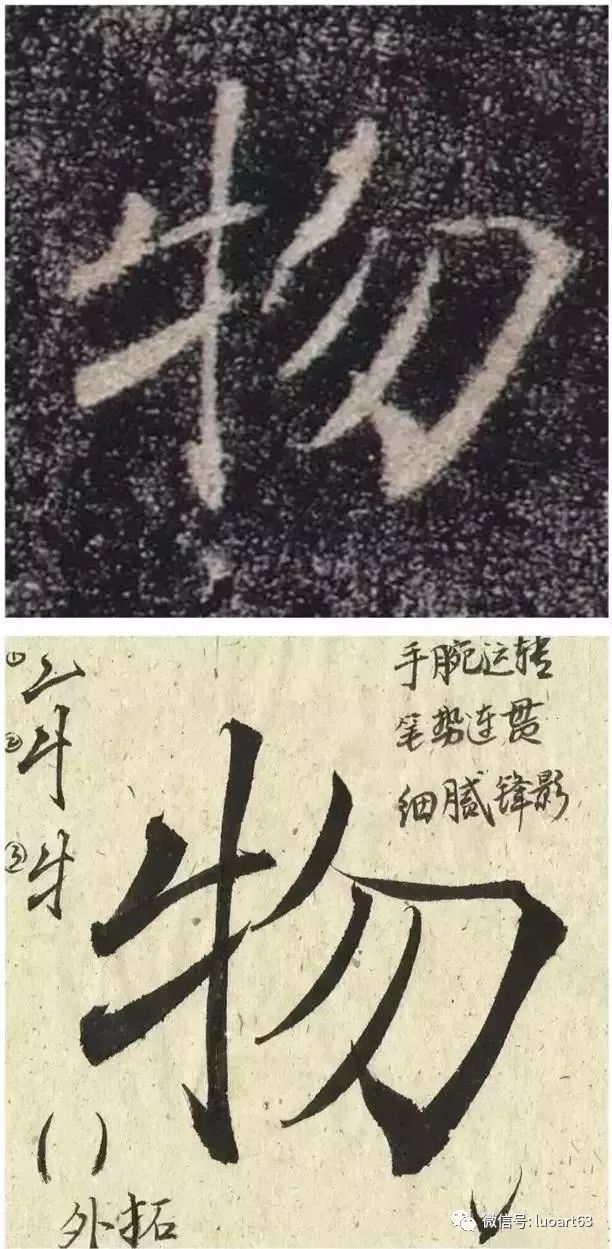 物
手腕运转
笔势连贯
细腻锋影
①
②
③
物
( )
外拓
微信号: luoart63